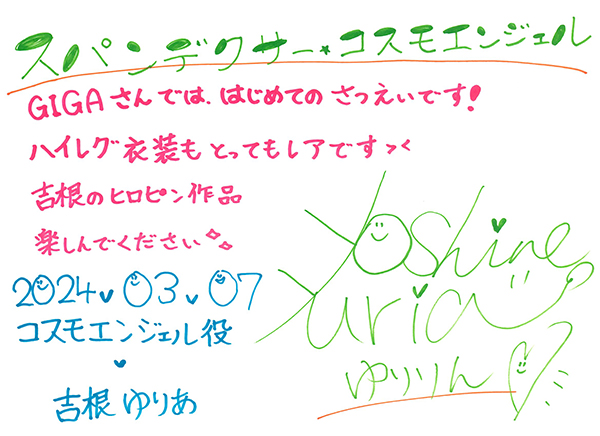 スパンデクサー★コスモエンジェル
GIGAさんでは、はじめての さつえいです!
ハイレグ衣装も とってもレアですっ<
吉根のヒロピン作品
楽しんでください
2024♥03♥07
コスモエンジェル役
♥
吉根 ゆりあ
Yoshine
Yuria
ゆりりん